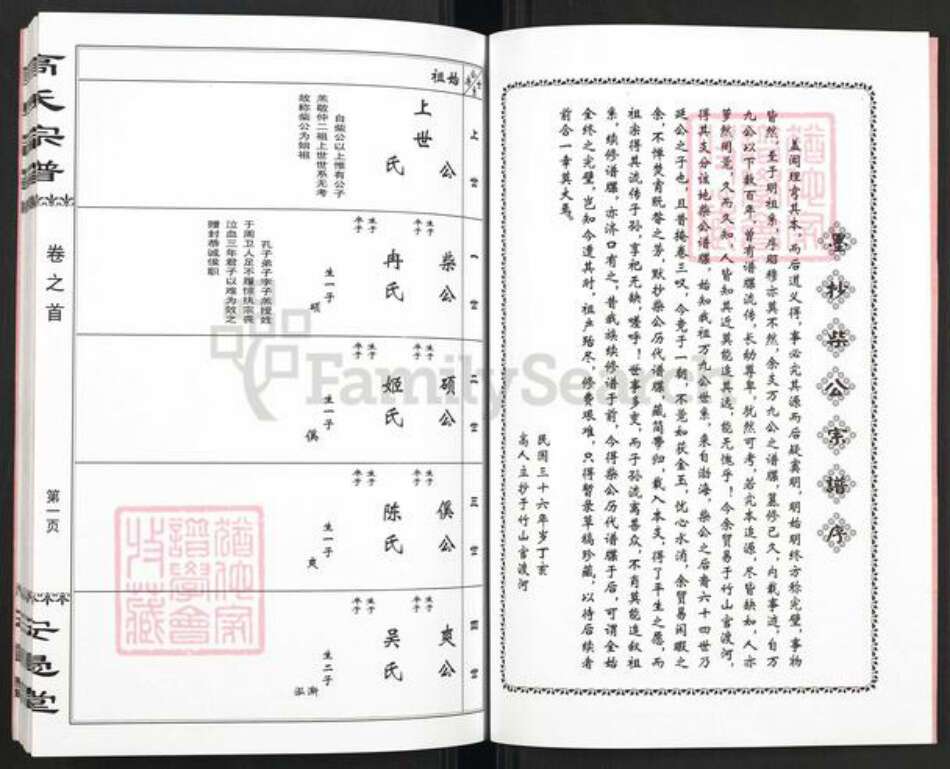 墨抄柴公宗譜序
盖闻理有其本，而后道义得，事必究其源而后疑窦明，明始明终方称完璧，事物
皆然，至于明祖系，序昭穆亦莫不然，余支万九公之谱牒，篡修已久，向载事迹，自万
九公以下数百年，曾有谱牒流传，长幼尊卑，犹然可考，若究本追源，尽皆缺如，人亦
得其支分该地柴公谱牒，始知我祖万九公世系，来自渤海，柴公之后裔六十四世乃
延公之子也，且昔掩卷三叹，今竟于一朝，不觉如获金玉，忧心水消，余贸易闲暇之
余，不惮焚膏晷之劳，默抄柴公历代谱牒，藏简带归，载入本支，得了平生之愿，而
祖宗得其流传子孙，享祀无缺，嗟呼！世事多变，而子孙流寓甚众，不肖莫能追叙祖
系，续修谱牒，亦济口有之，昔我族续修谱于前，今得柴公历代谱牒于后，可谓全始
全终之完璧，岂知今遭其时，祖产殆尽，修费艰难，只得暂录草稿珍藏，以待后续者
前合一幸莫大焉。
民国三十六年岁丁亥
高人主抄于竹山官渡河
始祖
上世
上世公
氏
自柴公以上惟有公子
羔敬仲二祖上世世系无考
故称柴公为始祖
一世
柴公
生于
卒于
冉氏
生于
卒于
生一子
硕
孔子弟子李子羔授姓
于周卫人足不履惊执宗丧
泣血三年君子以难为效之
赠封恭诚侯职
二世
硕公
生于
卒于
姬氏
生于
卒于
生一子
傒
三世
傒公
生于
卒于
陈氏
生于
卒于
生一子
爽
四世
爽公
生于
卒于
吴氏
生于
卒于
生二子
渐
泓
高氏宗谱
卷之首
第一页
FamilySearch